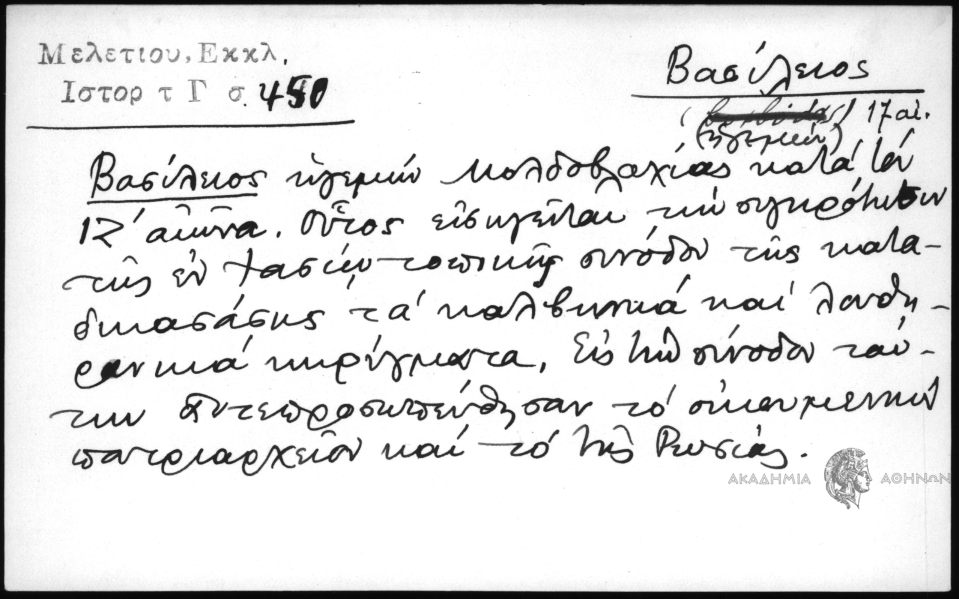 Μελετίου, Εκκλ.
Ιστορ τ Γ σ. 450
Βασίλειος
(ἡγεμών) 17 αἰ.
Βασίλειος ἡγεμών Μολδοβλαχίας κατά τόν
17' αἰῶνα. Οὗτος εἰσηγεῖται τήν συγκρότησιν
τῆς ἐν Ἰασίῳ τοπικῆς συνόδου τῆς κατα-
δικασάσης τά καλβινικά καί λουθη-
ρανικά κηρύγματα. Εἰς τήν σύνοδον ταύ-
την ἀντεπροσωπεύθησαν τό οἰκουμενικόν
πατριαρχεῖον καί τό τῆς Ρωσίας.
ΑΚΑΔΗΜΙΑ ΑΘΗΝΩΝ